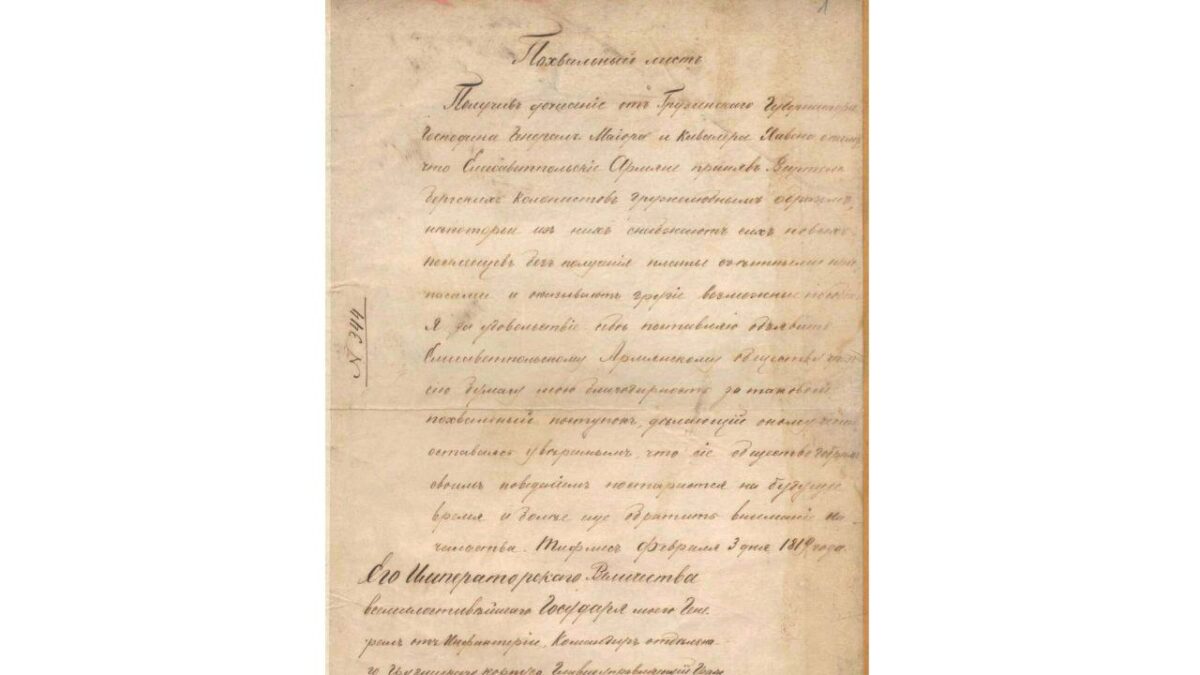 1
Похвальный листъ
Получивъ донесеніе отъ Грузинскаго Губернатора
Господина Генералъ Маіора и Кавалера
что Елисаветпольскіе Армяне принявъ Виртем
бергскихъ колонистовъ дружелюбнымъ образомъ,
некоторыи изъ нихъ снабжаютъ сихъ новыхъ
поселенцевъ безъ полученія платы съестными при
пасами и оказываютъ другіе возможные
Я за удовольствіе себе поставляю объявить
Елисаветпольскому Армянскому обществу
сію бумагу мою благодарность за таковой
похвальный поступокъ, делающій оному
оставаясь увереннымъ, что сіе общество
своимъ поведеніемъ постарается на будущее
время и более еще обратить вниманіе на
чальства. Тифлисъ Февраля 3 дня 1819 года.
N 344
Его Императорскаго Величества
всемилостивейшаго Государя моего Гене
ралъ отъ Инфантеріи, Командиръ отдельна
го Грузинскаго корпуса Главноуправляющій